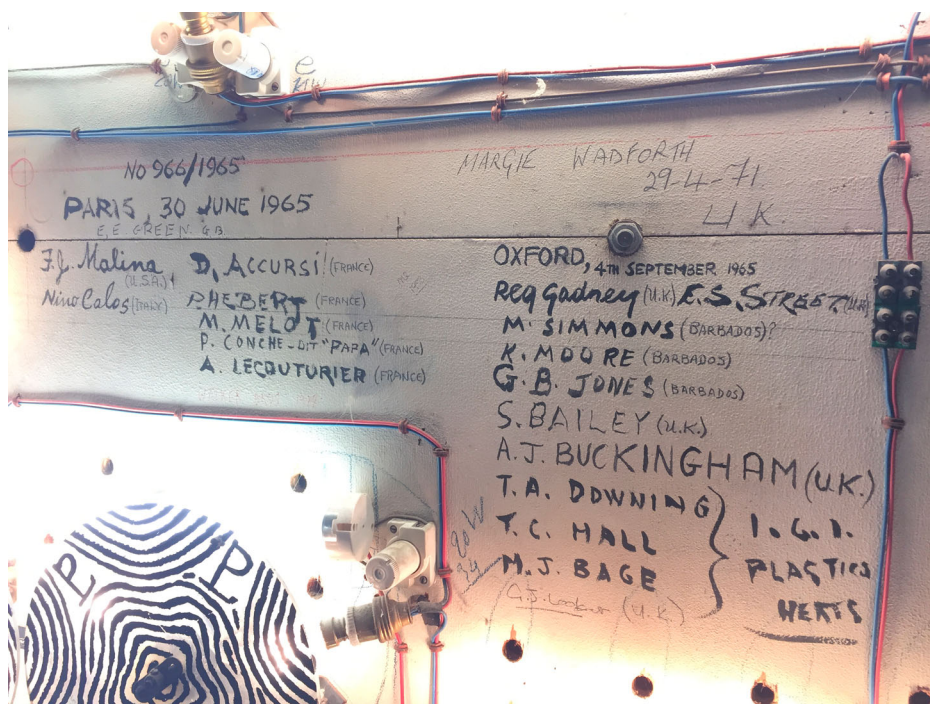 No 966/1965
PARIS, 30 JUNE 1965
E.E GREEN. G.B.
F.J. Malina (U.S.A.)
Nino Calos (ITALY)
D. ACCURSI (FRANCE)
P HEBERT (FRANCE)
M. MELOT (FRANCE)
P. CONCHE-DIT "PAPA" (FRANCE)
A. LECOUTURIER (FRANCE)
MARGIE WADFORTH
29-4-71.
U K.
OXFORD, 4TH SEPTEMBER 1965
Reg Gadney (U.K.) E.S. STREET (U.K.)
M. SIMMONS (BARBADOS)?
K. MOORE (BARBADOS)
G. B. JONES (BARBADOS)
S. BAILEY (U.K.)
A.J. BUCKINGHAM (U.K.)
T.A. DOWNING
T.C. HALL
M.J. BAGE
I.G.I.
PLASTICS
HERTS
(U.K.)
20W
P P